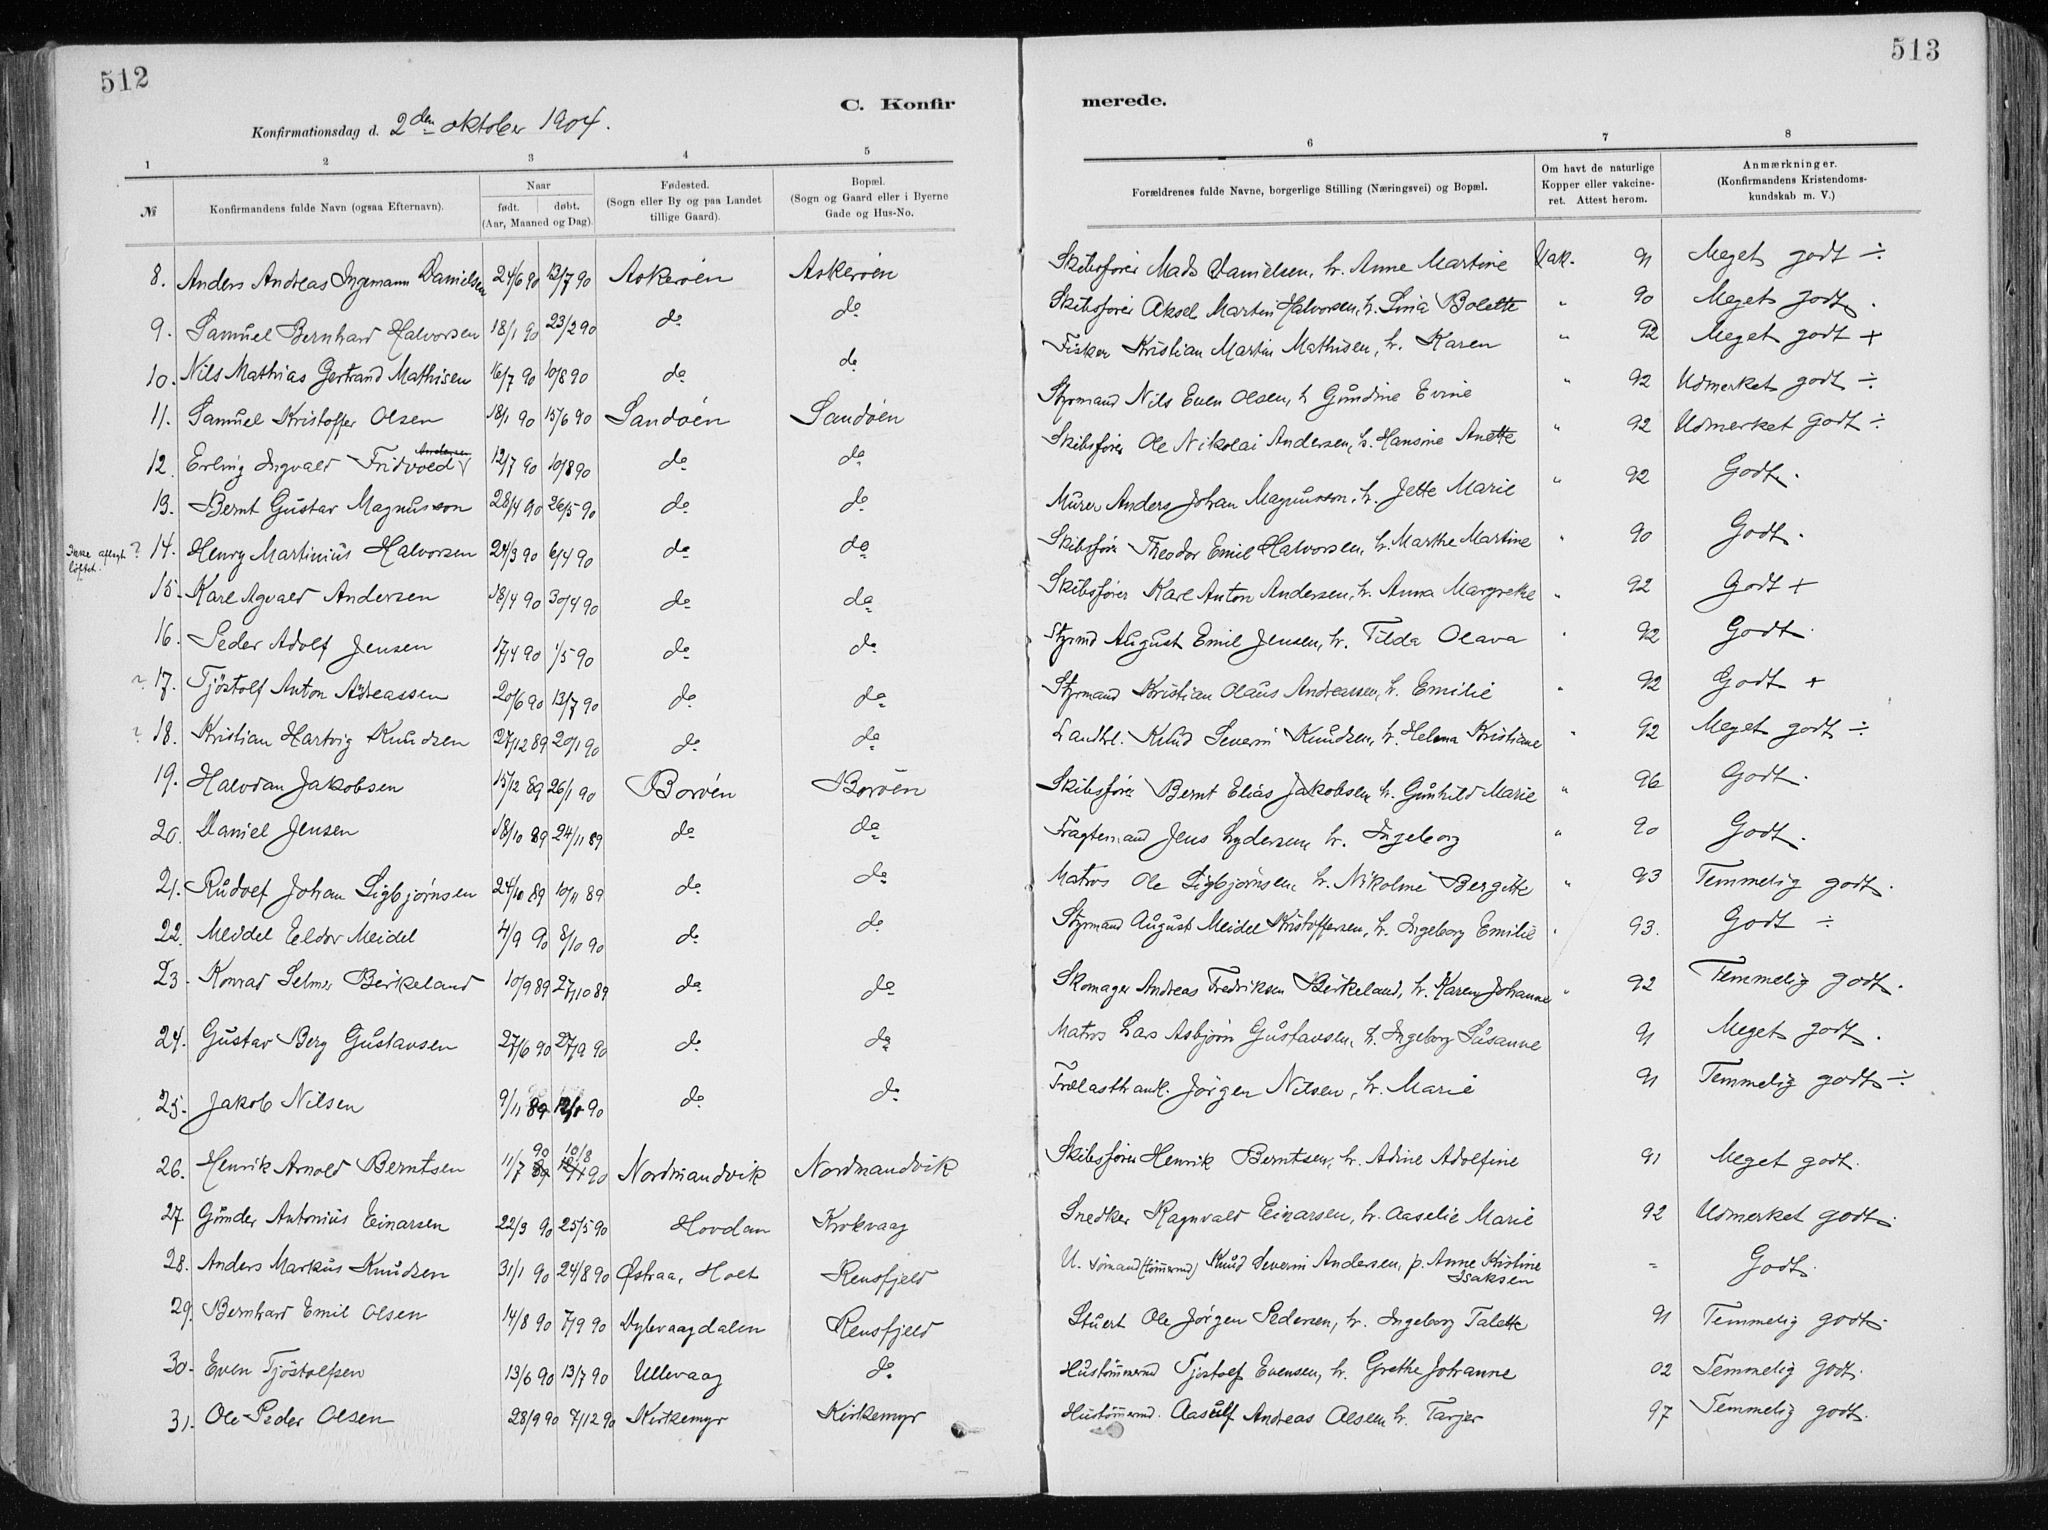 512
513
C. Konfir
merede.
Konfirmationsdag d. 2den oktober 1904.
1 2 3 4 5 6 7 8
№ Konfirmandens fulde Navn (ogsaa Efternavn). Naar født. døbt. (Aar, Maaned og Dag). Fødested. (Sogn eller By og paa Landet tillige Gaard). Bopæl. (Sogn og Gaard eller i Byerne Gade og Hus-No. Forældrenes fulde Navne, borgerlige Stilling (Næringsvei) og Bopæl. Om havt de naturlige Kopper eller vakcineret. Attest herom. Anmærkninger. (Konfirmandens Kristendomskundskab m. V.)
8. Anders Andreas Ingemann Danielsen 24/6 90 13/7 90 Askerøen Askerøen Skibsfører Mads Danielsen, h. Anne Martine Vak. 91 Meget godt ÷
9. Samuel Bernhard Halvorsen 18/1 90 23/2 90 do do Skibsfører Aksel Martin Halvorsen, h. Lina Bolette " 90 Meget godt.
10. Nils Mathias Gertrand Mathisen 16/7 90 10/8 90 do do Fisker Kristian Martin Mathisen, h. Karen " 92 Meget godt +
11. Samuel Kristoffer Olsen 18/1 90 15/6 90 Sandøen Sandøen Styrmand Nils Even Olsen, h Gundine Evine " 92 Udmerket godt ÷
12. Erling Ingvald Fridvoed Andersen 12/7 90 10/8 90 do do Skibsfører Ole Nikolai Andersen, h. Hansine Anette " 92 Udmerket godt ÷
13. Bernt Gustav Magnusson 28/4 90 26/5 90 do do Murer Anders Johan Magnusson, h. Jette Marie " 92 Godt.
Ikke aflagt løftet. ? 14. Henry Martinius Halvorsen 27/3 90 6/4 90 do do Skibsfører Theodor Emil Halvorsen, h. Marthe Martine " 90 Godt.
15. Karl Agvald Andersen 18/4 90 30/4 90 do do Skibsfører Karl Anton Andersen, h. Anna Margrethe " 92 Godt +
16. Peder Adolf Jensen 17/4 90 1/5 90 do do Styrmd August Emil Jensen, h. Tilda Olava " 92 Godt.
? 17. Tjöstolf Anton Andreassen 20/6 90 13/7 90 do do Styrmand Kristian Olaus Andreassen, h. Emilie " 92 Godt +
? 18. Kristian Hartvig Knudsen 27/12 89 20/1 90 do do Landhl. Knud Severin Knudsen, h. Helena Kristiane " 92 Meget godt ÷
19. Halvdan Jakobsen 15/12 89 26/1 90 Borøen Borøen Skibsfører Bernt Elias Jakobsen h. Gunhild Marie " 96 Godt.
20. Daniel Jensen 18/10 89 24/11 89 do do Fragtemand Jens Lydersen h. Ingeborg " 90 Godt.
21. Rudolf Johan Sigbjørnsen 24/10 89 10/11 89 do do Matros Ole Sigbjørnsen h. Nikoline Bergitte " 93 Temmelig godt.
22. Meidel Eldor Meidel 4/9 90 8/10 90 do do Styrmand August Meidel Kristoffersen, h. Ingeborg Emilie " 93. Godt ÷
23. Konrad Selmer Birkeland 10/9 89 27/10 89 do do Skomager Andreas Fredriksen Birkeland, h. Karen Johanne " 92 Temmelig godt.
24. Gustav Berg Gustavsen 27/6 90 27/9 90 do do Matros Lars Asbjørn Gustavsen, h. Ingeborg Susanne 91 Meget godt.
25. Jakob Nilsen 9/11 89 12/1 90 do do Trælasthandl. Jörgen Nilsen, h. Marie 91 Temmelig godt ÷
26. Henrik Arnold Berntsen 11/7 90 10/8 90 Nordmandvik Nordmandvik Skibsfører Henrik Berntsen, h. Adine Adolfine 91 Meget godt.
27. Gunder Antonius Einarsen 22/3 90 25/5 90 Hovdan Krokvaag Snedker Ragnvald Einarsen, h. Aaselie Marie 92 Udmerket godt.
28. Anders Markus Knudsen 31/1 90 24/8 90 Østraa, Holt Rensfjeld U. sömand (tömmermd) Knud Severin Andersen, p. Anne Kristine Isaksen - Godt
29. Bernhard Emil Olsen 14/8 90 7/9 90 Dybvaagdalen Rensfjeld Stuert Ole Jørgen Pedersen, h. Ingeborg Talette 91 Temmelig godt.
30. Even Tjöstolfsen 13/6 90 13/7 90 Ullevaag do Hustömmermd Tjøstolf Evensen, h. Grethe Johanne 02 Temmelig godt.
31. Ole Peder Olsen 28/9 90 7/12 90 Kirkemyr Kirkemyr Hustömmermd. Aasulf Andreas Olsen h. Tarjer 97 Temmelig godt.